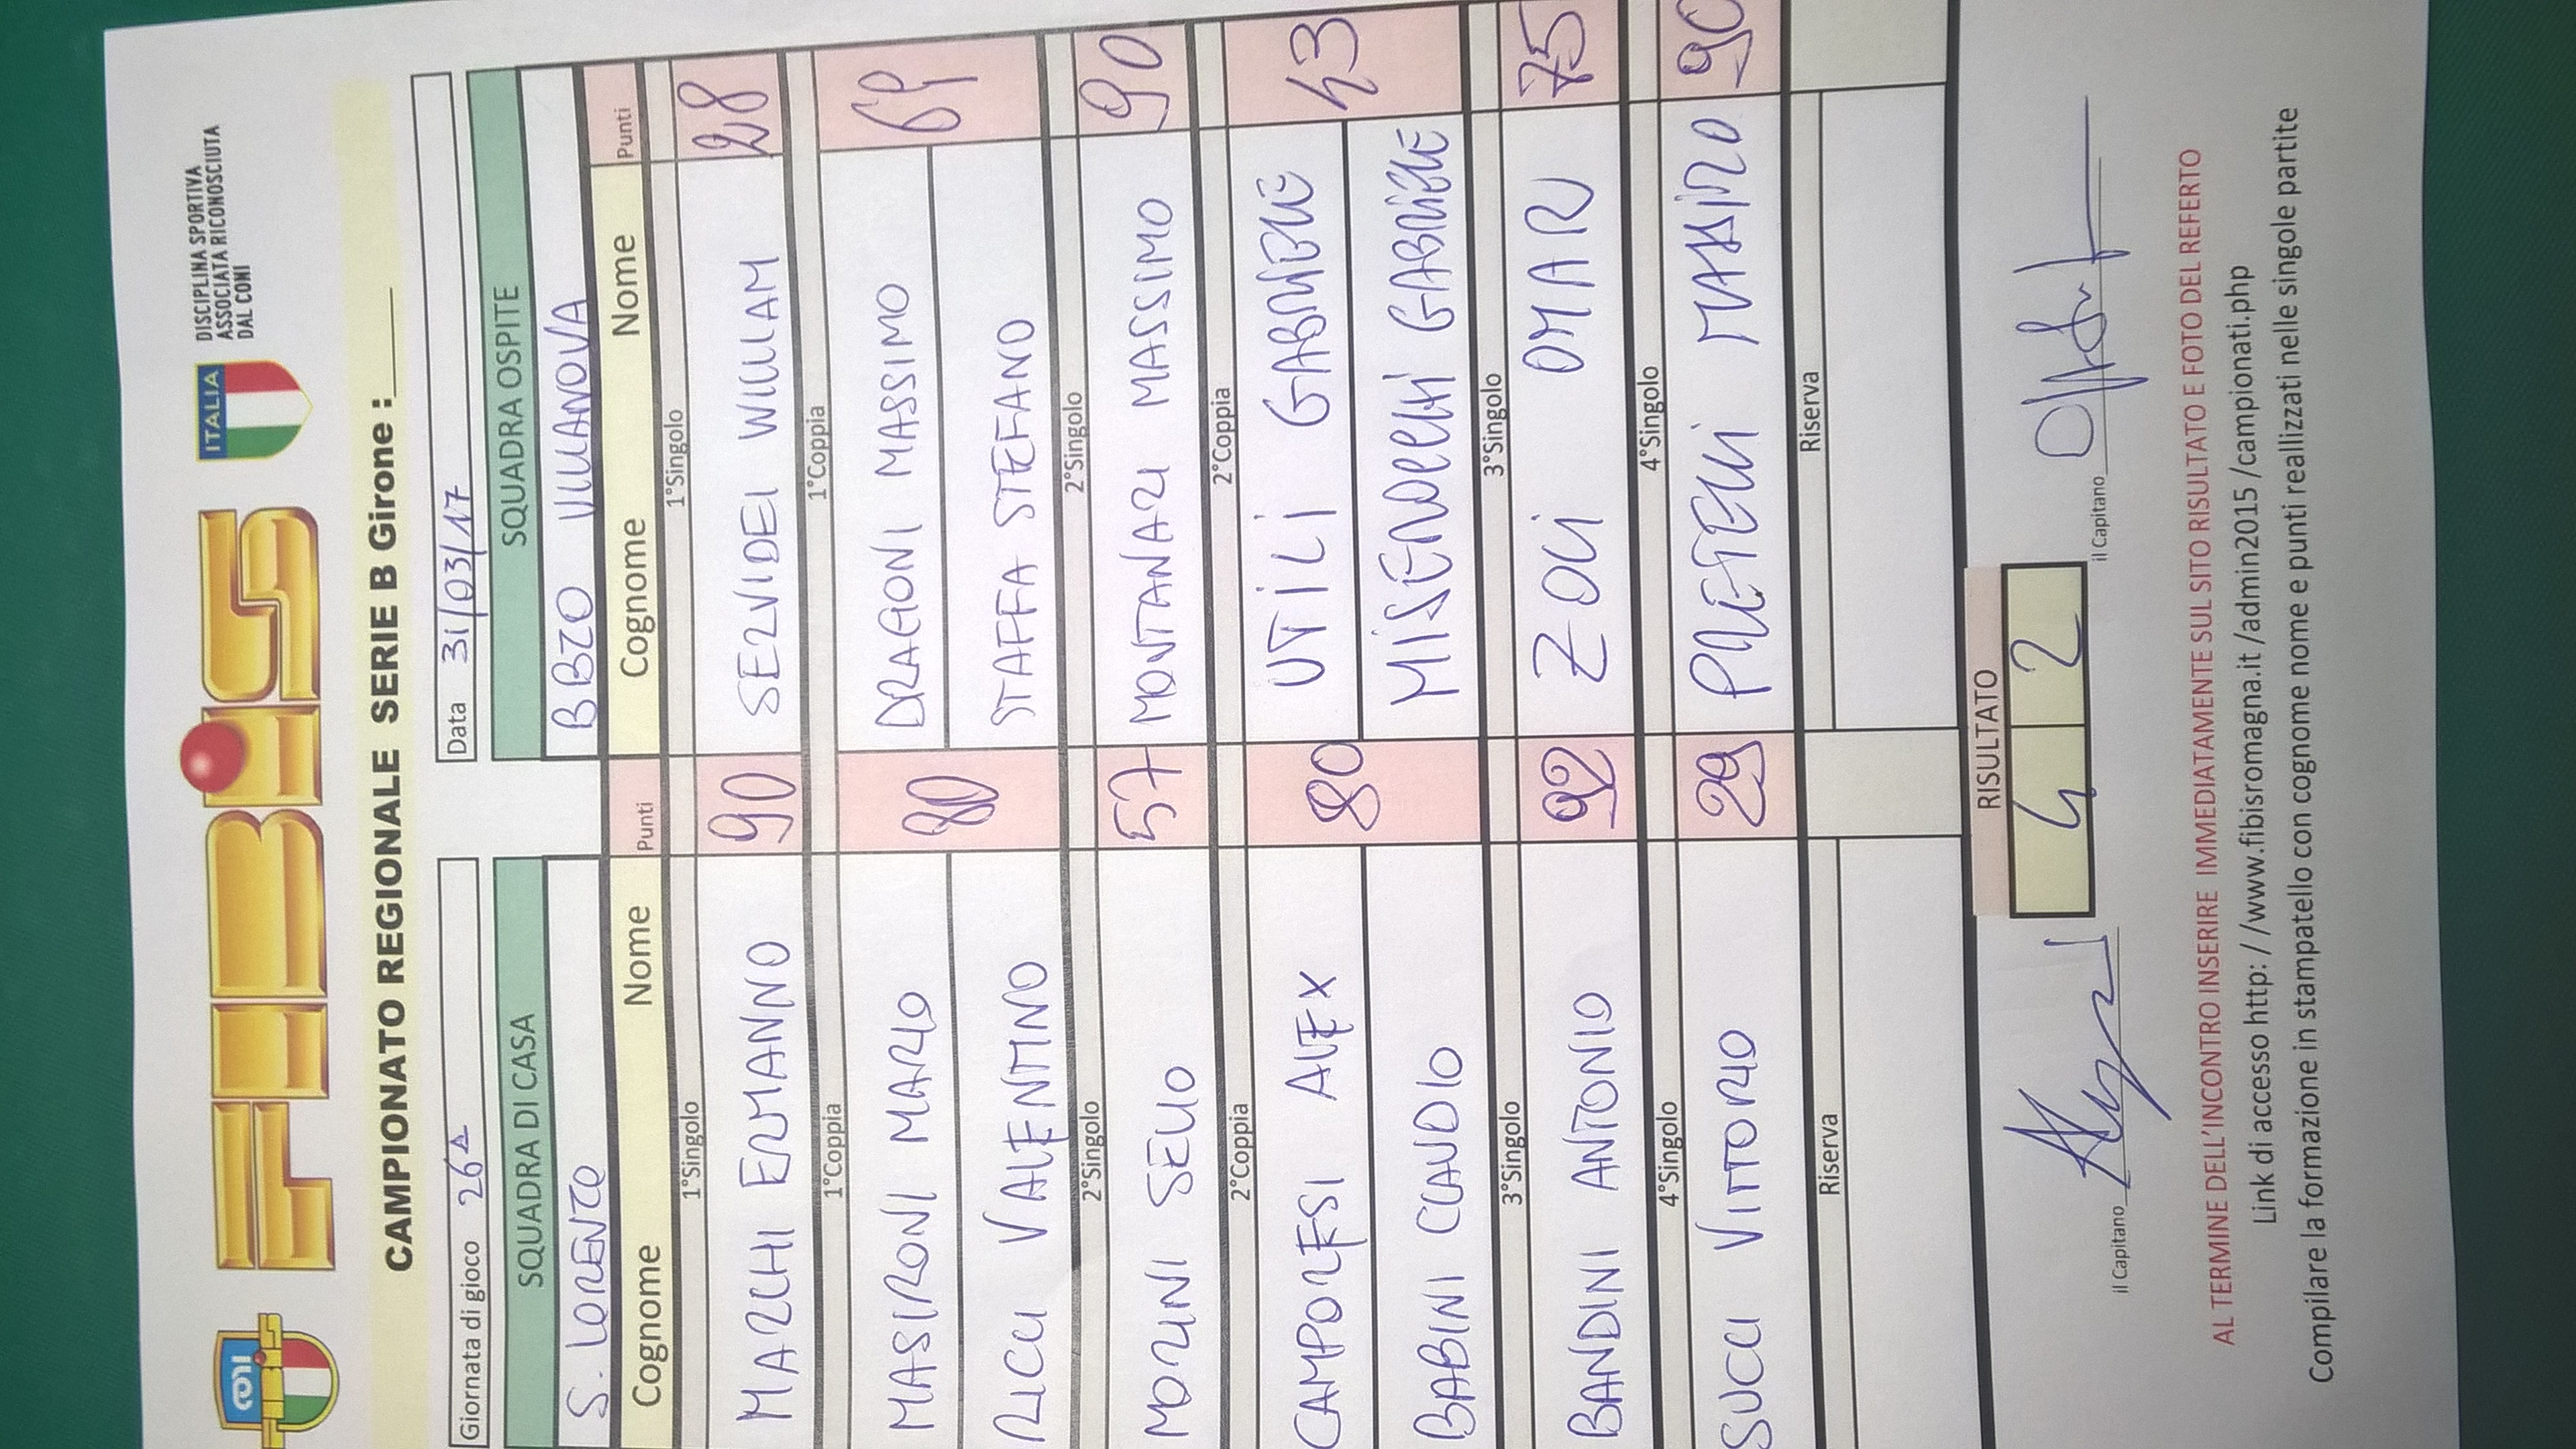 CONI
FIBiS
ITALIA
DISCIPLINA SPORTIVA
ASSOCIATA RICONOSCIUTA
DAL CONI
CAMPIONATO REGIONALE SERIE B Girone :
Giornata di gioco 26^
Data 31/03/17
SQUADRA DI CASA SQUADRA OSPITE
S. LORENZO BBZO VILLANOVA
Cognome Nome Punti Cognome Nome Punti
1°Singolo 1°Singolo
MARCHI ERMANNO 90 SERVIDEI WILLIAM 28
1°Coppia 1°Coppia
MASIRONI MARIO 80 DRAGONI MASSIMO 69
RICCI VALENTINO STAFFA STEFANO
2°Singolo 2°Singolo
MORINI SELLO 57 MONTANARI MASSIMO 90
2°Coppia 2°Coppia
CAMPORESI ALEX 80 UTILI GABRIELE 43
BABINI CLAUDIO MISEROCCHI GABRIELE
3°Singolo 3°Singolo
BANDINI ANTONIO 92 ZOLI OMAR 75
4°Singolo 4°Singolo
SUCCI VITTORIO 29 PRETELLI MASSIMO 90
Riserva Riserva
RISULTATO
4 2
il Capitano il Capitano
AL TERMINE DELL'INCONTRO INSERIRE IMMEDIATAMENTE SUL SITO RISULTATO E FOTO DEL REFERTO
Link di accesso http: / /www.fibisromagna.it /admin2015 /campionati.php
Compilare la formazione in stampatello con cognome nome e punti reallizzati nelle singole partite